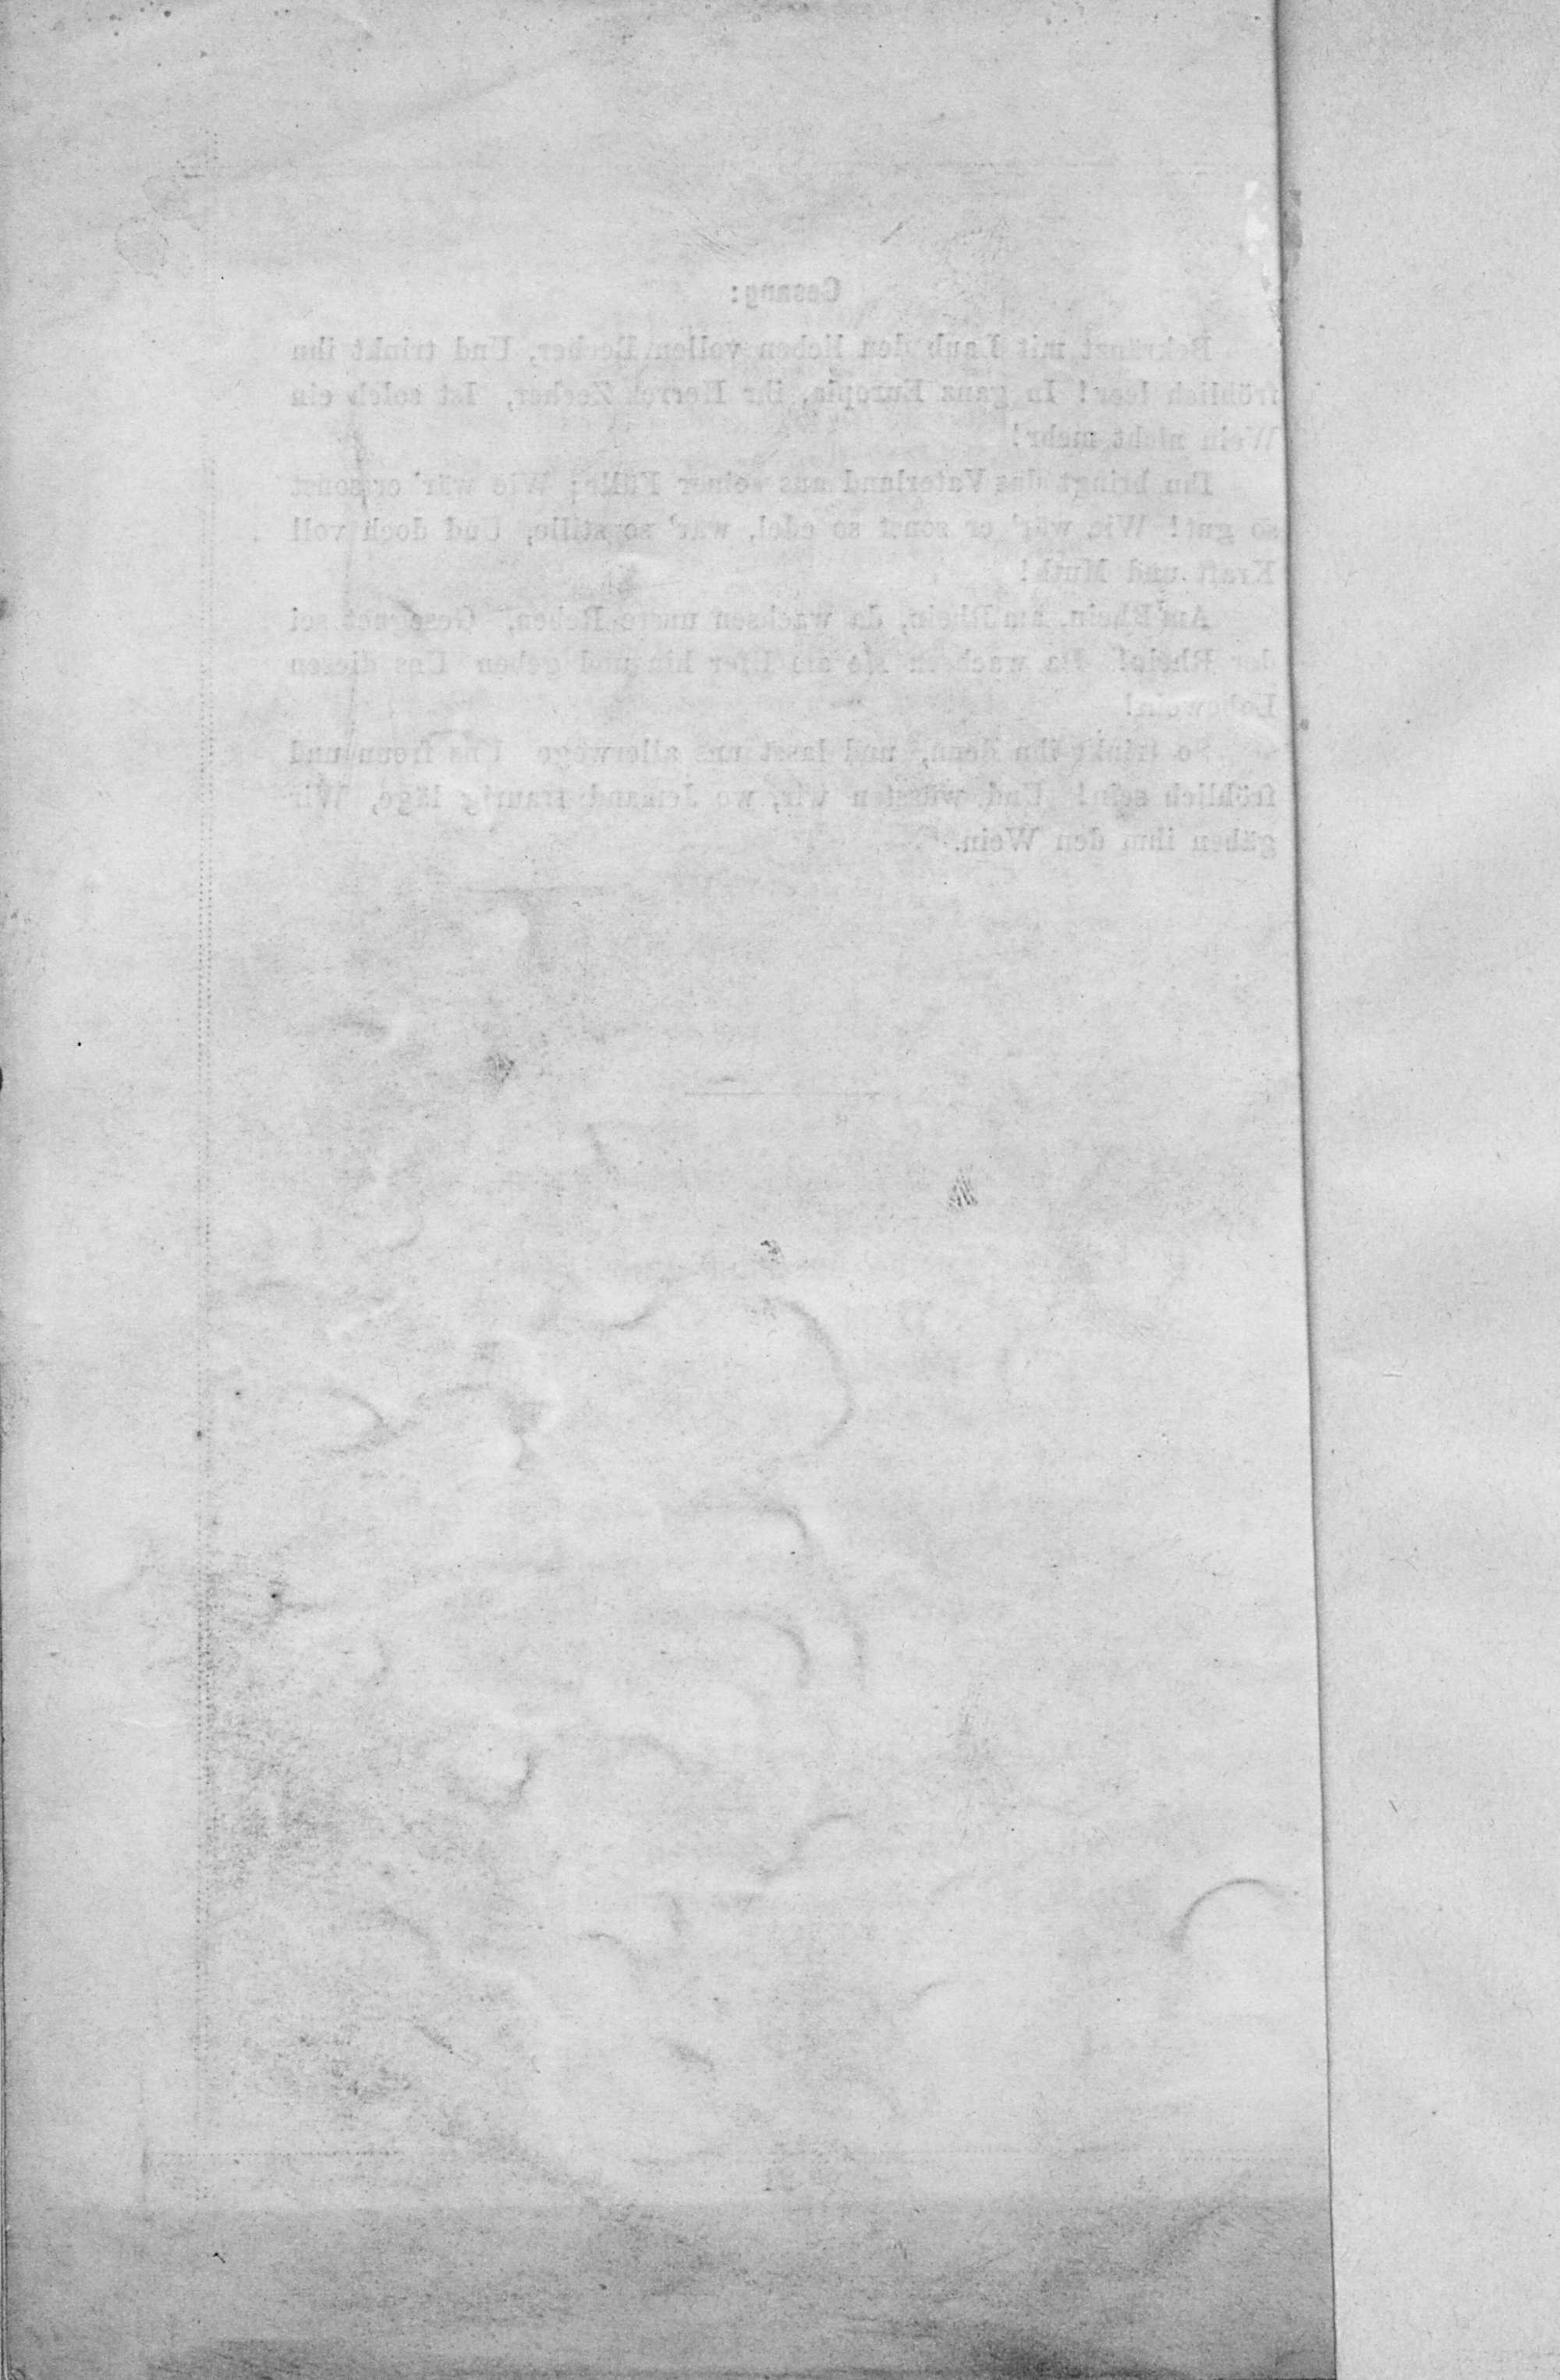 Gesang:
Bekränzt mit Laub den lieben vollen Becher, Und trinkt ihn
fröhlich leer! In ganz Europia, ihr Herren Zecher, Ist solch ein
Wein nicht mehr!
Ihn bringt das Vaterland aus seiner Fülle; Wie wär' er sonst
so gut! Wie wär' er sonst so edel, wär' so stille, Und doch voll
Kraft und Muth!
Am Rhein, am Rhein, da wachsen unsre Reben, Gesegnet sei
der Rhein! Da wachsen sie am Ufer hin und geben Uns diesen
Labewein!
So trinkt ihn denn, und lasst uns allerwege Uns freun und
fröhlich sein! Und wüssten wir, wo Jemand traurig läge, Wir
gäben ihm den Wein.